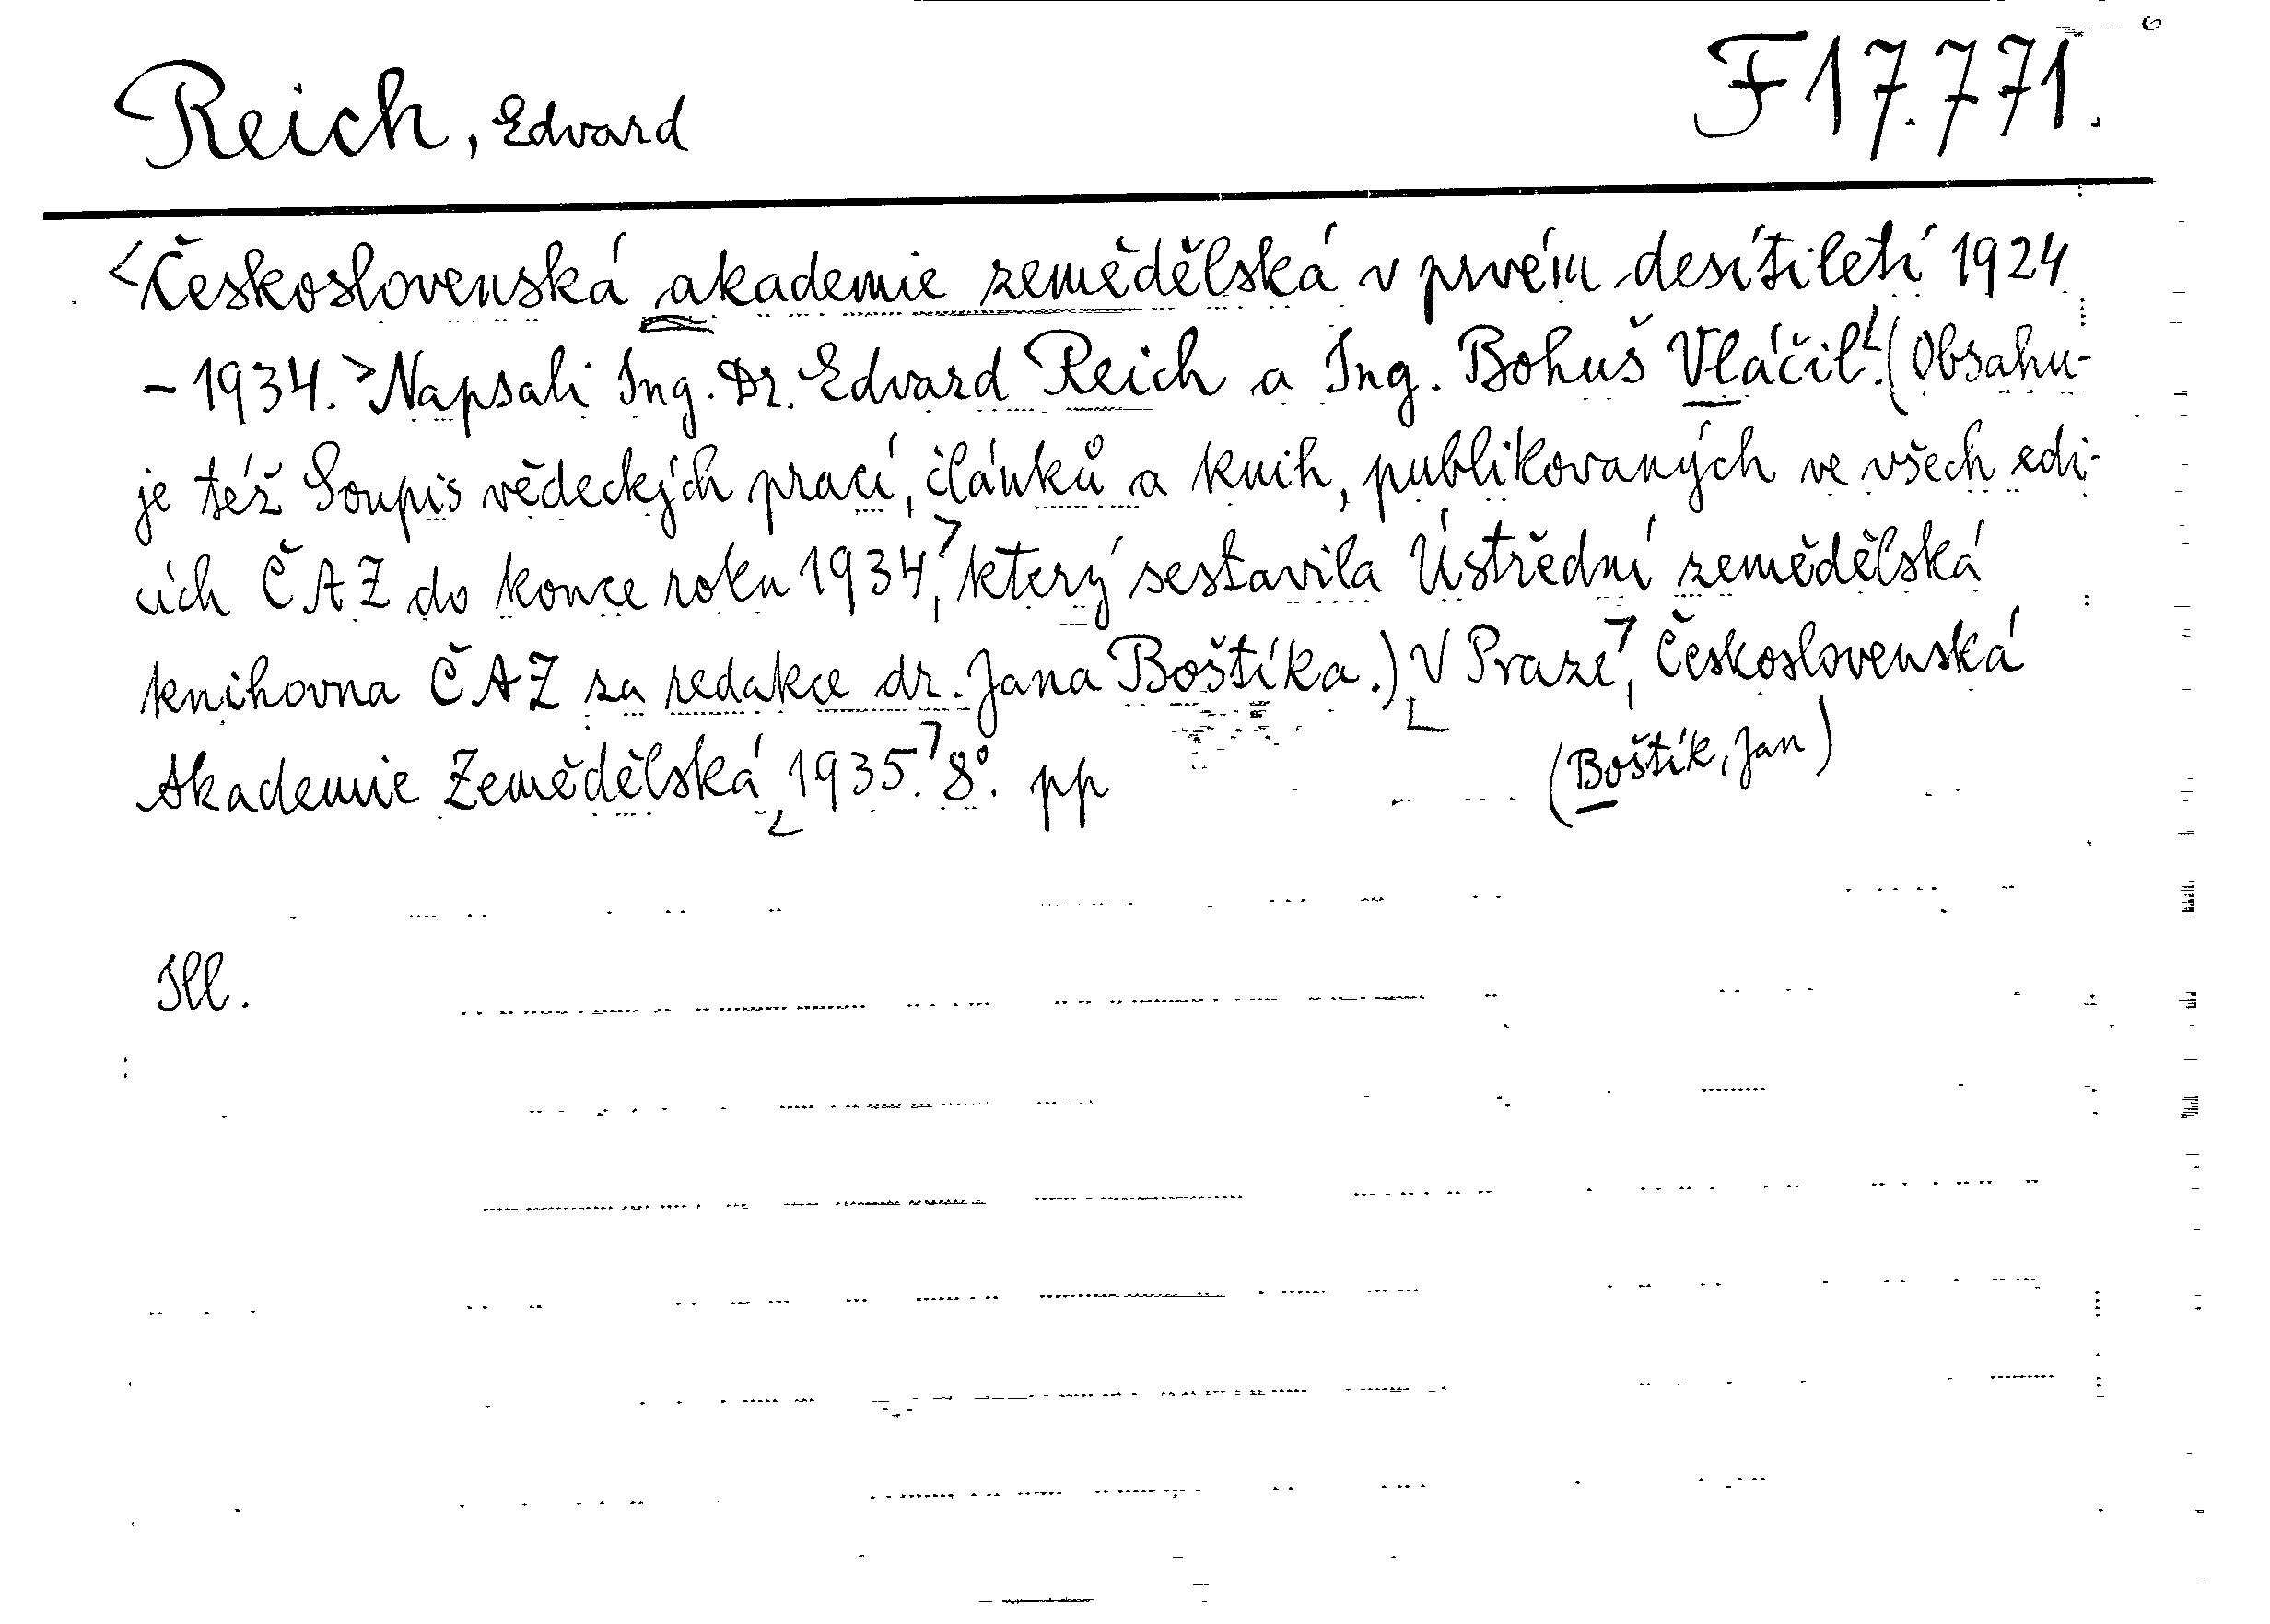 Reich, Edvard F 17.771.
<Československá akademie zemědělská v prvém desítiletí 1924
- 1934.> Napsali Ing. Dr. Edvard Reich a Ing. Bohuš Vláčil. (Obsahu-
je též Soupis vědeckých prací, článků a knih, publikovaných ve všech edi-
cích ČAZ do konce roku 1934, který sestavila Ústřední zemědělská
knihovna ČAZ za redakce dr. Jana Boštíka.) V Praze, Československá
Akademie Zemědělská 1935. 8°. pp
(Boštík, Jan)
Ill.